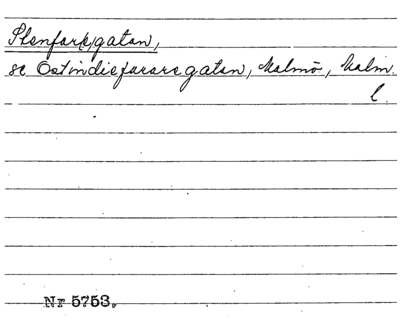 Stenfarksgatan,
se Ostindiefararegatan, Malmö, Malm.
l.
Nr 5753.